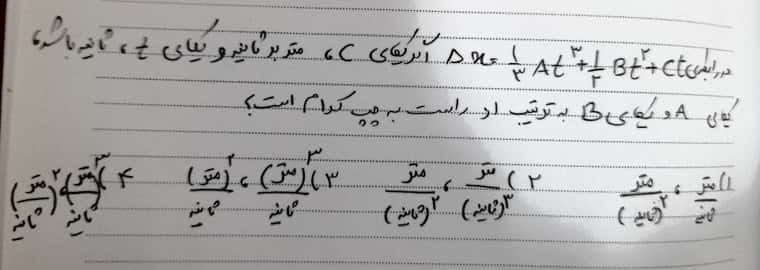 در رابطه‌ی Δx = 1/3 At³ + 1/2 Bt² + Ct اگر یکای C، متر بر ثانیه و یکای t، ثانیه باشد،
یکای A و یکای B به ترتیب از راست به چپ کدام است؟
۱) متر/ثانیه ، متر/(ثانیه)² ۲) متر/(ثانیه)³ ، متر/(ثانیه)² ۳) (متر)³/ثانیه ، (متر)²/ثانیه ۴) (متر/ثانیه)³ ، (متر/ثانیه)²